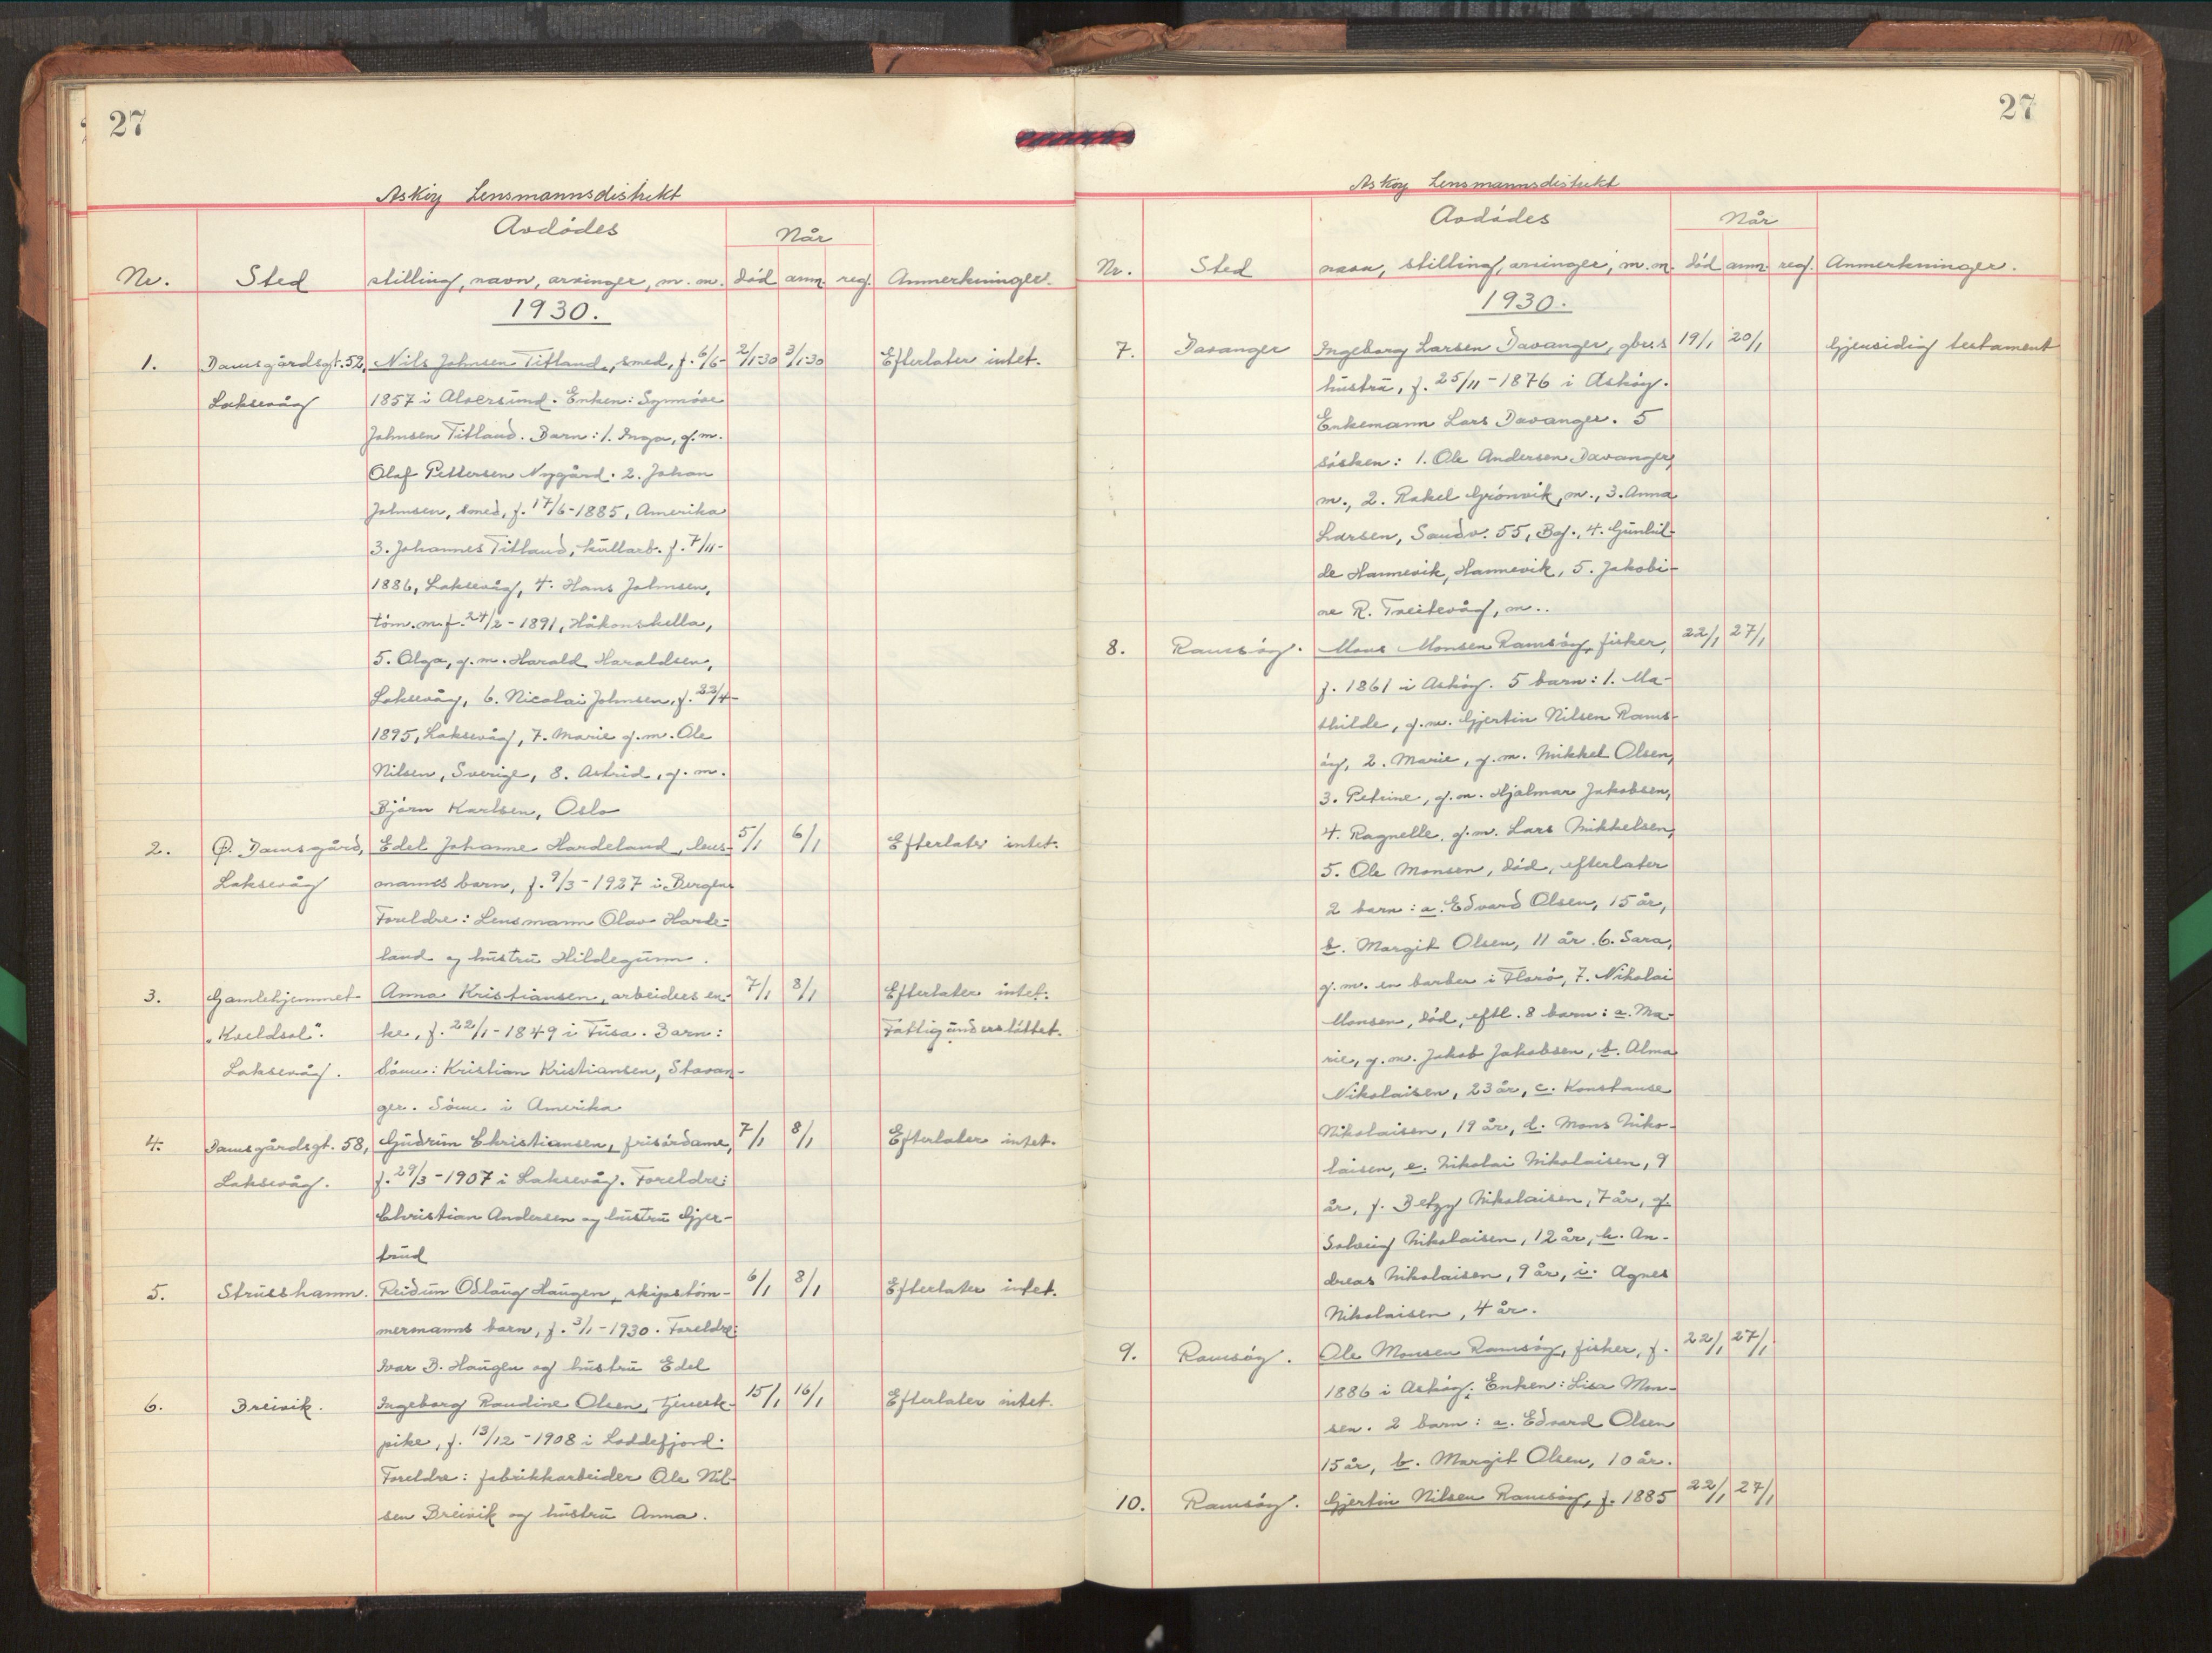 27
Askøy Lensmannsdistrikt
Avdødes
Når
Nr. Sted stilling, navn, arvinger, m. m. død anm. reg. Anmerkninger.
1930.
1. Damsgårdsgt. 52, Nils Johnsen Titland, smed, f. 6/6- 2/1-30 3/1-30 Efterlater intet.
Laksevåg 1857 i Alversund. Enken: Synnøve
Johnsen Titland. Barn: 1. Inga, g. m.
Olaf Pettersen Nygård. 2. Johan
Johnsen, smed, f. 17/6-1885, Amerika
3. Johannes Titland, kullarb. f. 7/11-
1886, Laksevåg, 4. Hans Johnsen,
tøm. m. f. 24/2-1891, Håkonshella,
5. Olga, g. m. Harald Haraldsen,
Laksevåg, 6. Nicolai Johnsen, f. 23/4-
1895, Laksevåg, 7. Marie g. m. Ole
Nilsen, Sverige, 8. Astrid, g. m.
Bjørn Karlsen, Oslo
2. Ø. Damsgård, Edel Johanne Hardeland, lens- 5/1 6/1 Efterlater intet.
Laksevåg manns barn, f. 9/3-1927 i Bergen
Foreldre: Lensmann Olav Harde-
land og hustru Hildegunn.
3. Gamlehjemmet Anna Kristiansen, arbeiders en- 7/1 8/1 Efterlater intet.
"Kveldsol". ke, f. 22/1-1849 i Fusa. Barn: Fattigunderstøttet.
Laksevåg. Sønn: Kristian Kristiansen, Stavan-
ger. Sønn i Amerika
4. Damsgårdsgt. 58, Gudrun Christiansen, frisørdame, 7/1 8/1 Efterlater intet.
Laksevåg. f. 29/3-1907 i Laksevåg. Foreldre:
Christian Andersen og hustru Gjer-
trud
5. Strusshamn. Reidun Odlaug Haugen, skipstøm- 6/1 8/1 Efterlater intet.
mermanns barn, f. 3/1-1930. Foreldre:
Ivar B. Haugen og hustru Edel
6. Breivik. Ingeborg Raudine Olsen, tjeneste- 15/1 16/1 Efterlater intet.
pike, f. 13/12-1908 i Loddefjord.
Foreldre: fabrikkarbeider Ole Nil-
sen Breivik og hustru Anna.
27
Askøy Lensmannsdistrikt
Avdødes
Når
Nr. Sted navn, stilling, arvinger, m. m. død anm. reg. Anmerkninger.
1930.
7. Davanger Ingeborg Larsen Davanger, gbr.s 19/1 20/1 Gjensidig testament
hustru, f. 25/11-1876 i Askøy.
Enkemann Lars Davanger. 5
søsken: 1. Ole Andersen Davanger,
m., 2. Rakel Grønvik, m., 3. Anna
Larsen, Sandv. 55, Bg., 4. Gunhil-
de Hannevik, Hannevik, 5. Jakobi-
ne R. Træitevåg, m..
8. Ramsøy. Mons Monsen Ramsøy, fisker, 22/1 27/1
f. 1861 i Askøy. 5 barn: 1. Ma-
thilde, g. m. Gjertin Nilsen Rams-
øy, 2. Marie, g. m. Mikkel Olsen,
3. Petrine, g. m. Hjalmar Jakobsen,
4. Ragnelle, g. m. Lars Mikkelsen,
5. Ole Monsen, død, efterlater
2 barn: a. Edvard Olsen, 15 år,
b. Margit Olsen, 11 år. 6. Sara,
g. m. en barber i Florø, 7. Nikolai
Monsen, død, eftl. 8 barn: a. Ma-
rie, g. m. Jakob Jakobsen, b. Alma
Nikolaisen, 23 år, c. Konstanse
Nikolaisen, 19 år, d. Mons Niko-
laisen, e. Nikolai Nikolaisen, 9
år, f. Betzy Nikolaisen, 7 år, g.
Solveig Nikolaisen, 12 år, h. An-
dreas Nikolaisen, 9 år, i. Agnes
Nikolaisen, 4 år.
9. Ramsøy. Ole Monsen Ramsøy, fisker, f. 22/1 27/1
1886 i Askøy. Enken: Lisa Mon-
sen. 2 barn: a. Edvard Olsen
15 år, b. Margit Olsen, 10 år.
10. Ramsøy. Gjertin Nilsen Ramsøy, f. 1885 22/1 27/1